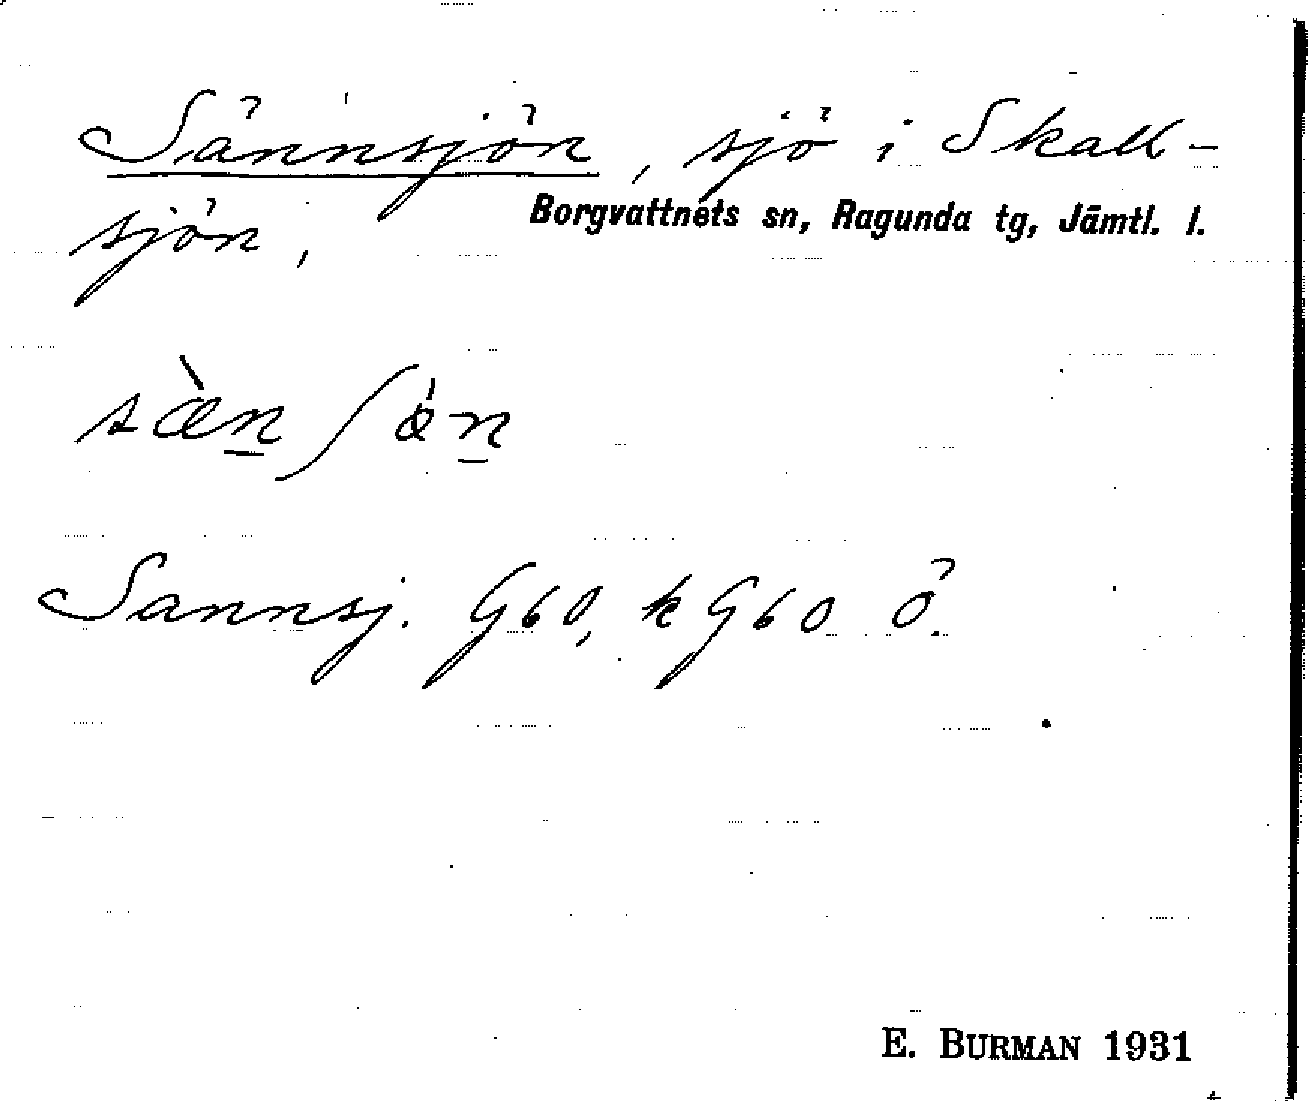 Sännsjön, sjö i Skall-
sjön, Borgvattnets sn, Ragunda tg, Jämtl. l.
sæ̀n̲ʃön̲
Sannsj. G60, k G60 Ö.
E. BURMAN 1931